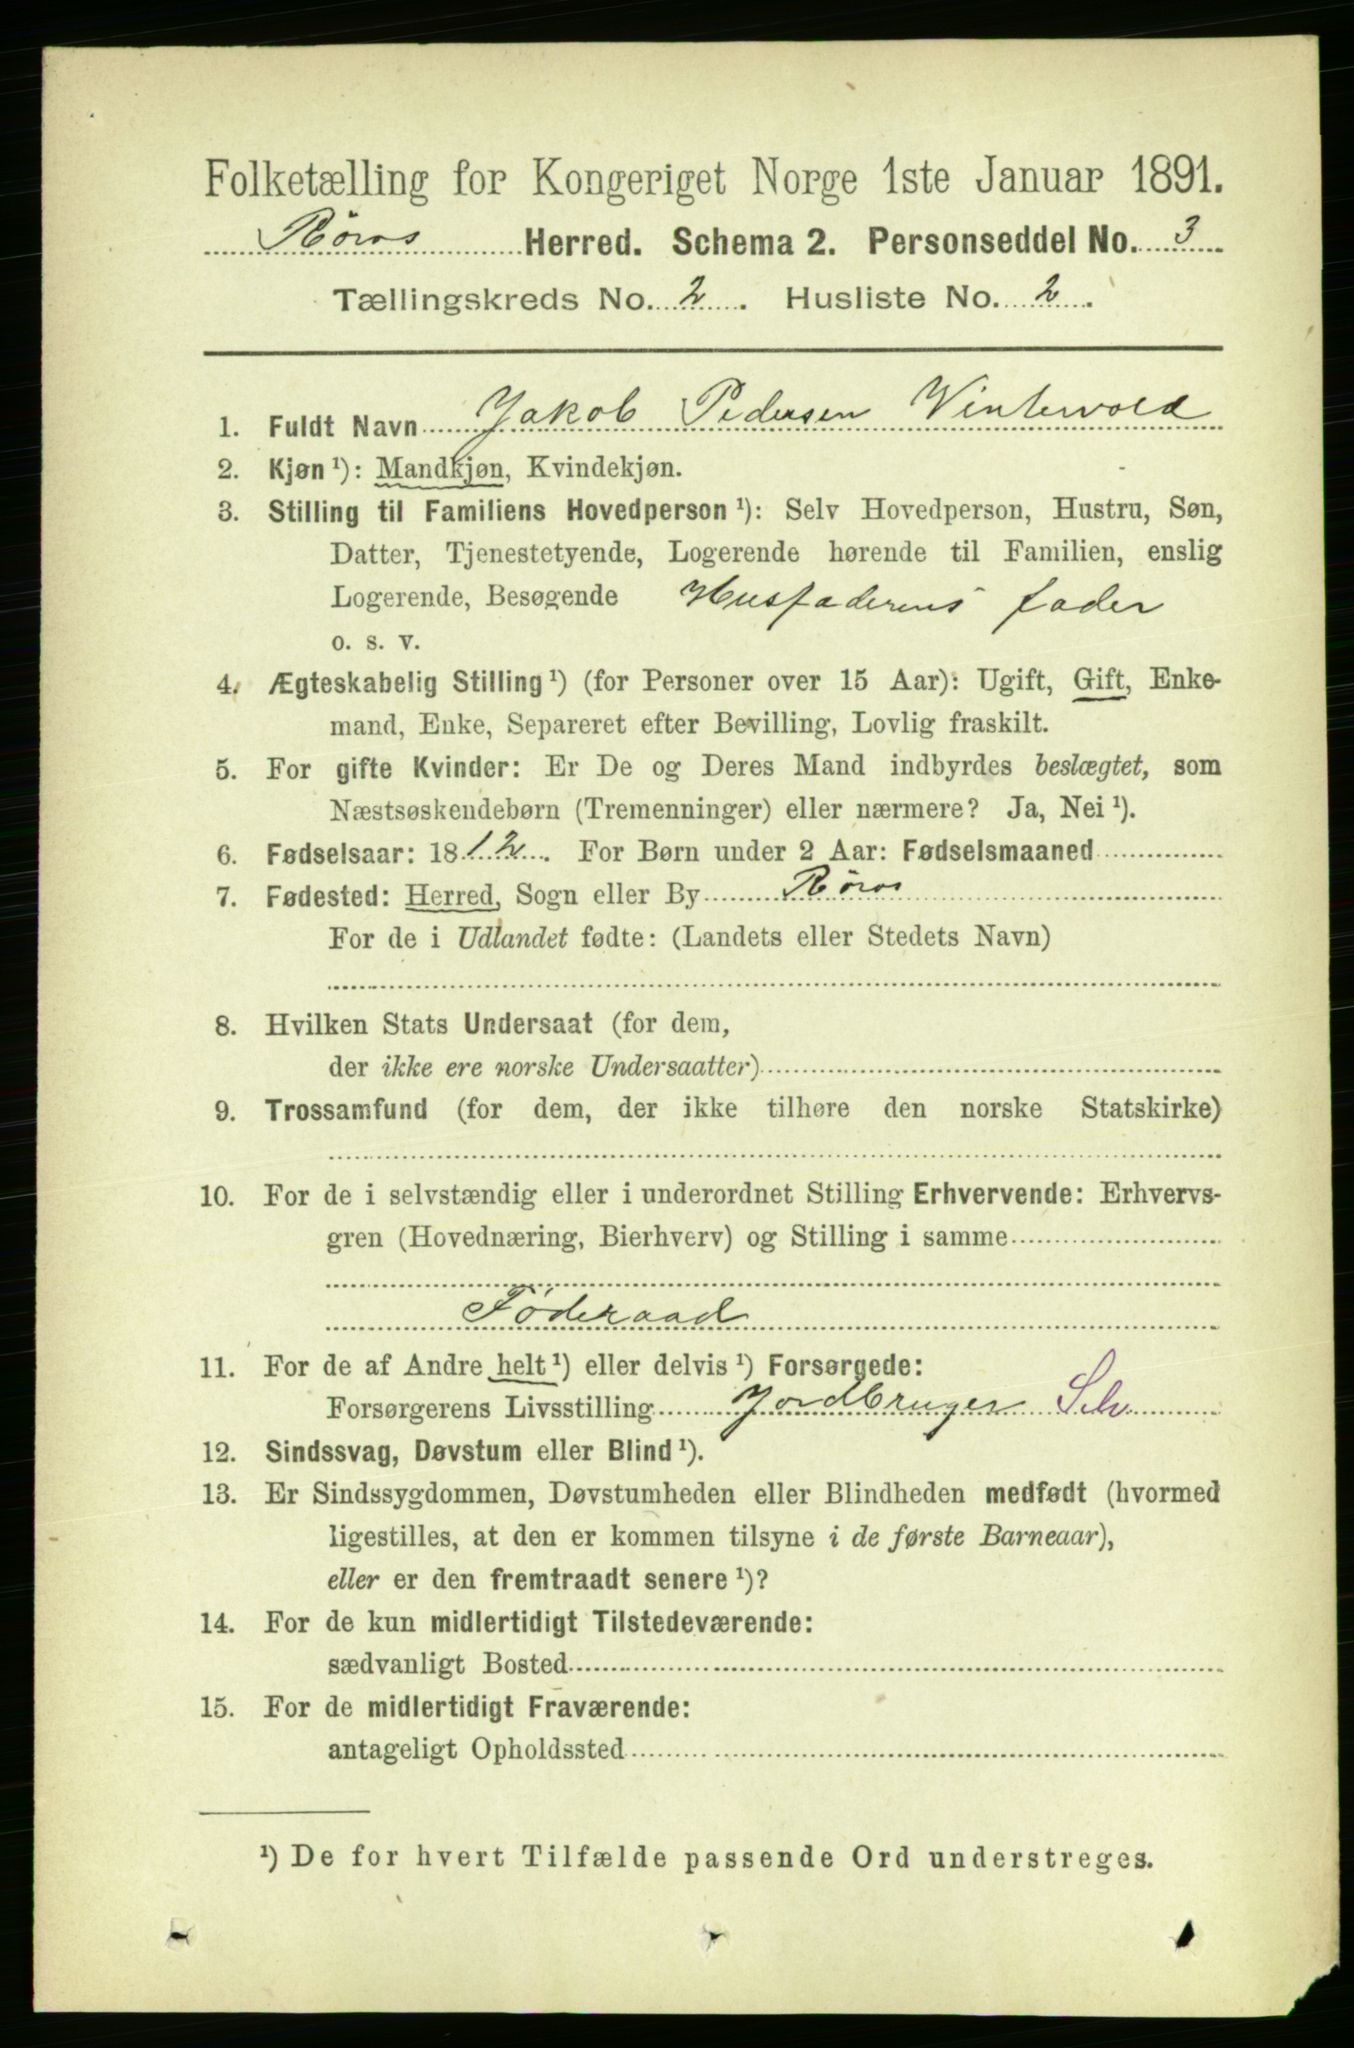 Folketælling for Kongeriget Norge 1ste Januar 1891.
Röros Herred. Schema 2. Personseddel No. 3
Tællingskreds No. 2. Husliste No. 2.
1. Fuldt Navn Jakob Pedersen Vintervold
2. Kjøn ¹): Mandkjøn, Kvindekjøn.
3. Stilling til Familiens Hovedperson ¹): Selv Hovedperson, Hustru, Søn,
Datter, Tjenestetyende, Logerende hørende til Familien, enslig
Logerende, Besøgende Husfaderens fader
o. s. v.
4. Ægteskabelig Stilling ¹) (for Personer over 15 Aar): Ugift, Gift, Enke-
mand, Enke, Separeret efter Bevilling, Lovlig fraskilt.
5. For gifte Kvinder: Er De og Deres Mand indbyrdes beslægtet, som
Næstsøskendebørn (Tremenninger) eller nærmere? Ja, Nei ¹).
6. Fødselsaar: 1812. For Børn under 2 Aar: Fødselsmaaned
7. Fødested: Herred, Sogn eller By Röros
For de i Udlandet fødte: (Landets eller Stedets Navn)
8. Hvilken Stats Undersaat (for dem,
der ikke ere norske Undersaatter)
9. Trossamfund (for dem, der ikke tilhøre den norske Statskirke)
10. For de i selvstændig eller i underordnet Stilling Erhvervende: Erhvervs-
gren (Hovednæring, Bierhverv) og Stilling i samme
Föderaad
11. For de af Andre helt ¹) eller delvis ¹) Forsørgede:
Forsørgerens Livsstilling Jordbruger Selv
12. Sindssvag, Døvstum eller Blind ¹).
13. Er Sindssygdommen, Døvstumheden eller Blindheden medfødt (hvormed
ligestilles, at den er kommen tilsyne i de første Barneaar),
eller er den fremtraadt senere ¹)?
14. For de kun midlertidigt Tilstedeværende:
sædvanligt Bosted
15. For de midlertidigt Fraværende:
antageligt Opholdssted
¹) De for hvert Tilfælde passende Ord understreges.